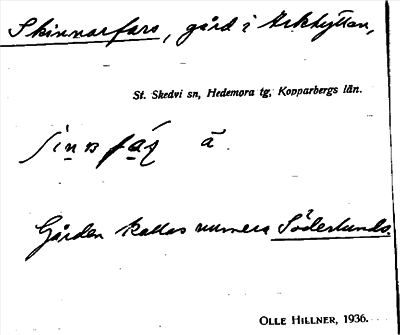 Skinnarfars, gård i Arkhyttan,
St. Skedvi sn, Hedemora tg, Kopparbergs län.
ā
Gården kallas numera Söderlunds.
OLLE HILLNER, 1936.